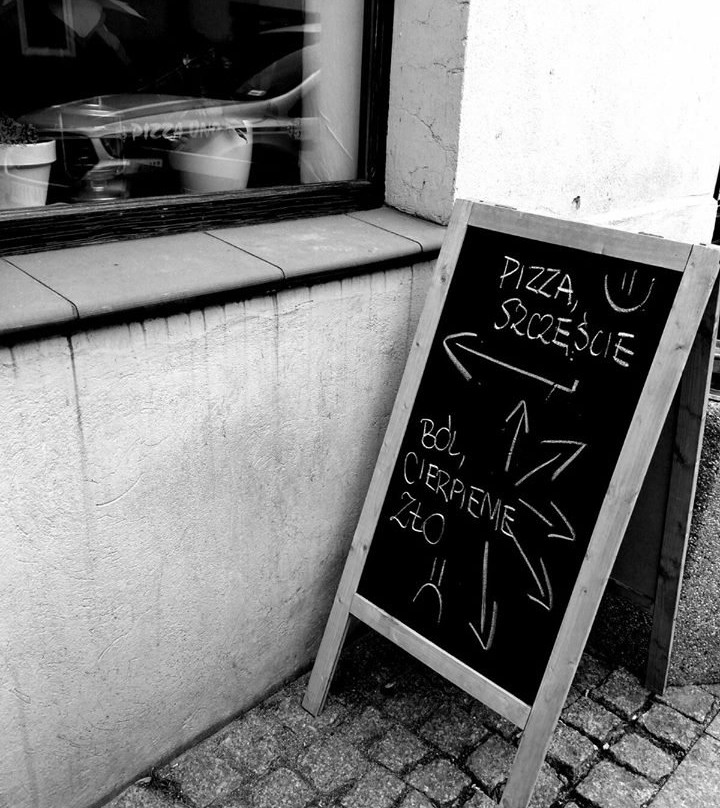 PIZZA,
SZCZĘŚCIE
BÓL,
CIERPIENIE
ZŁO